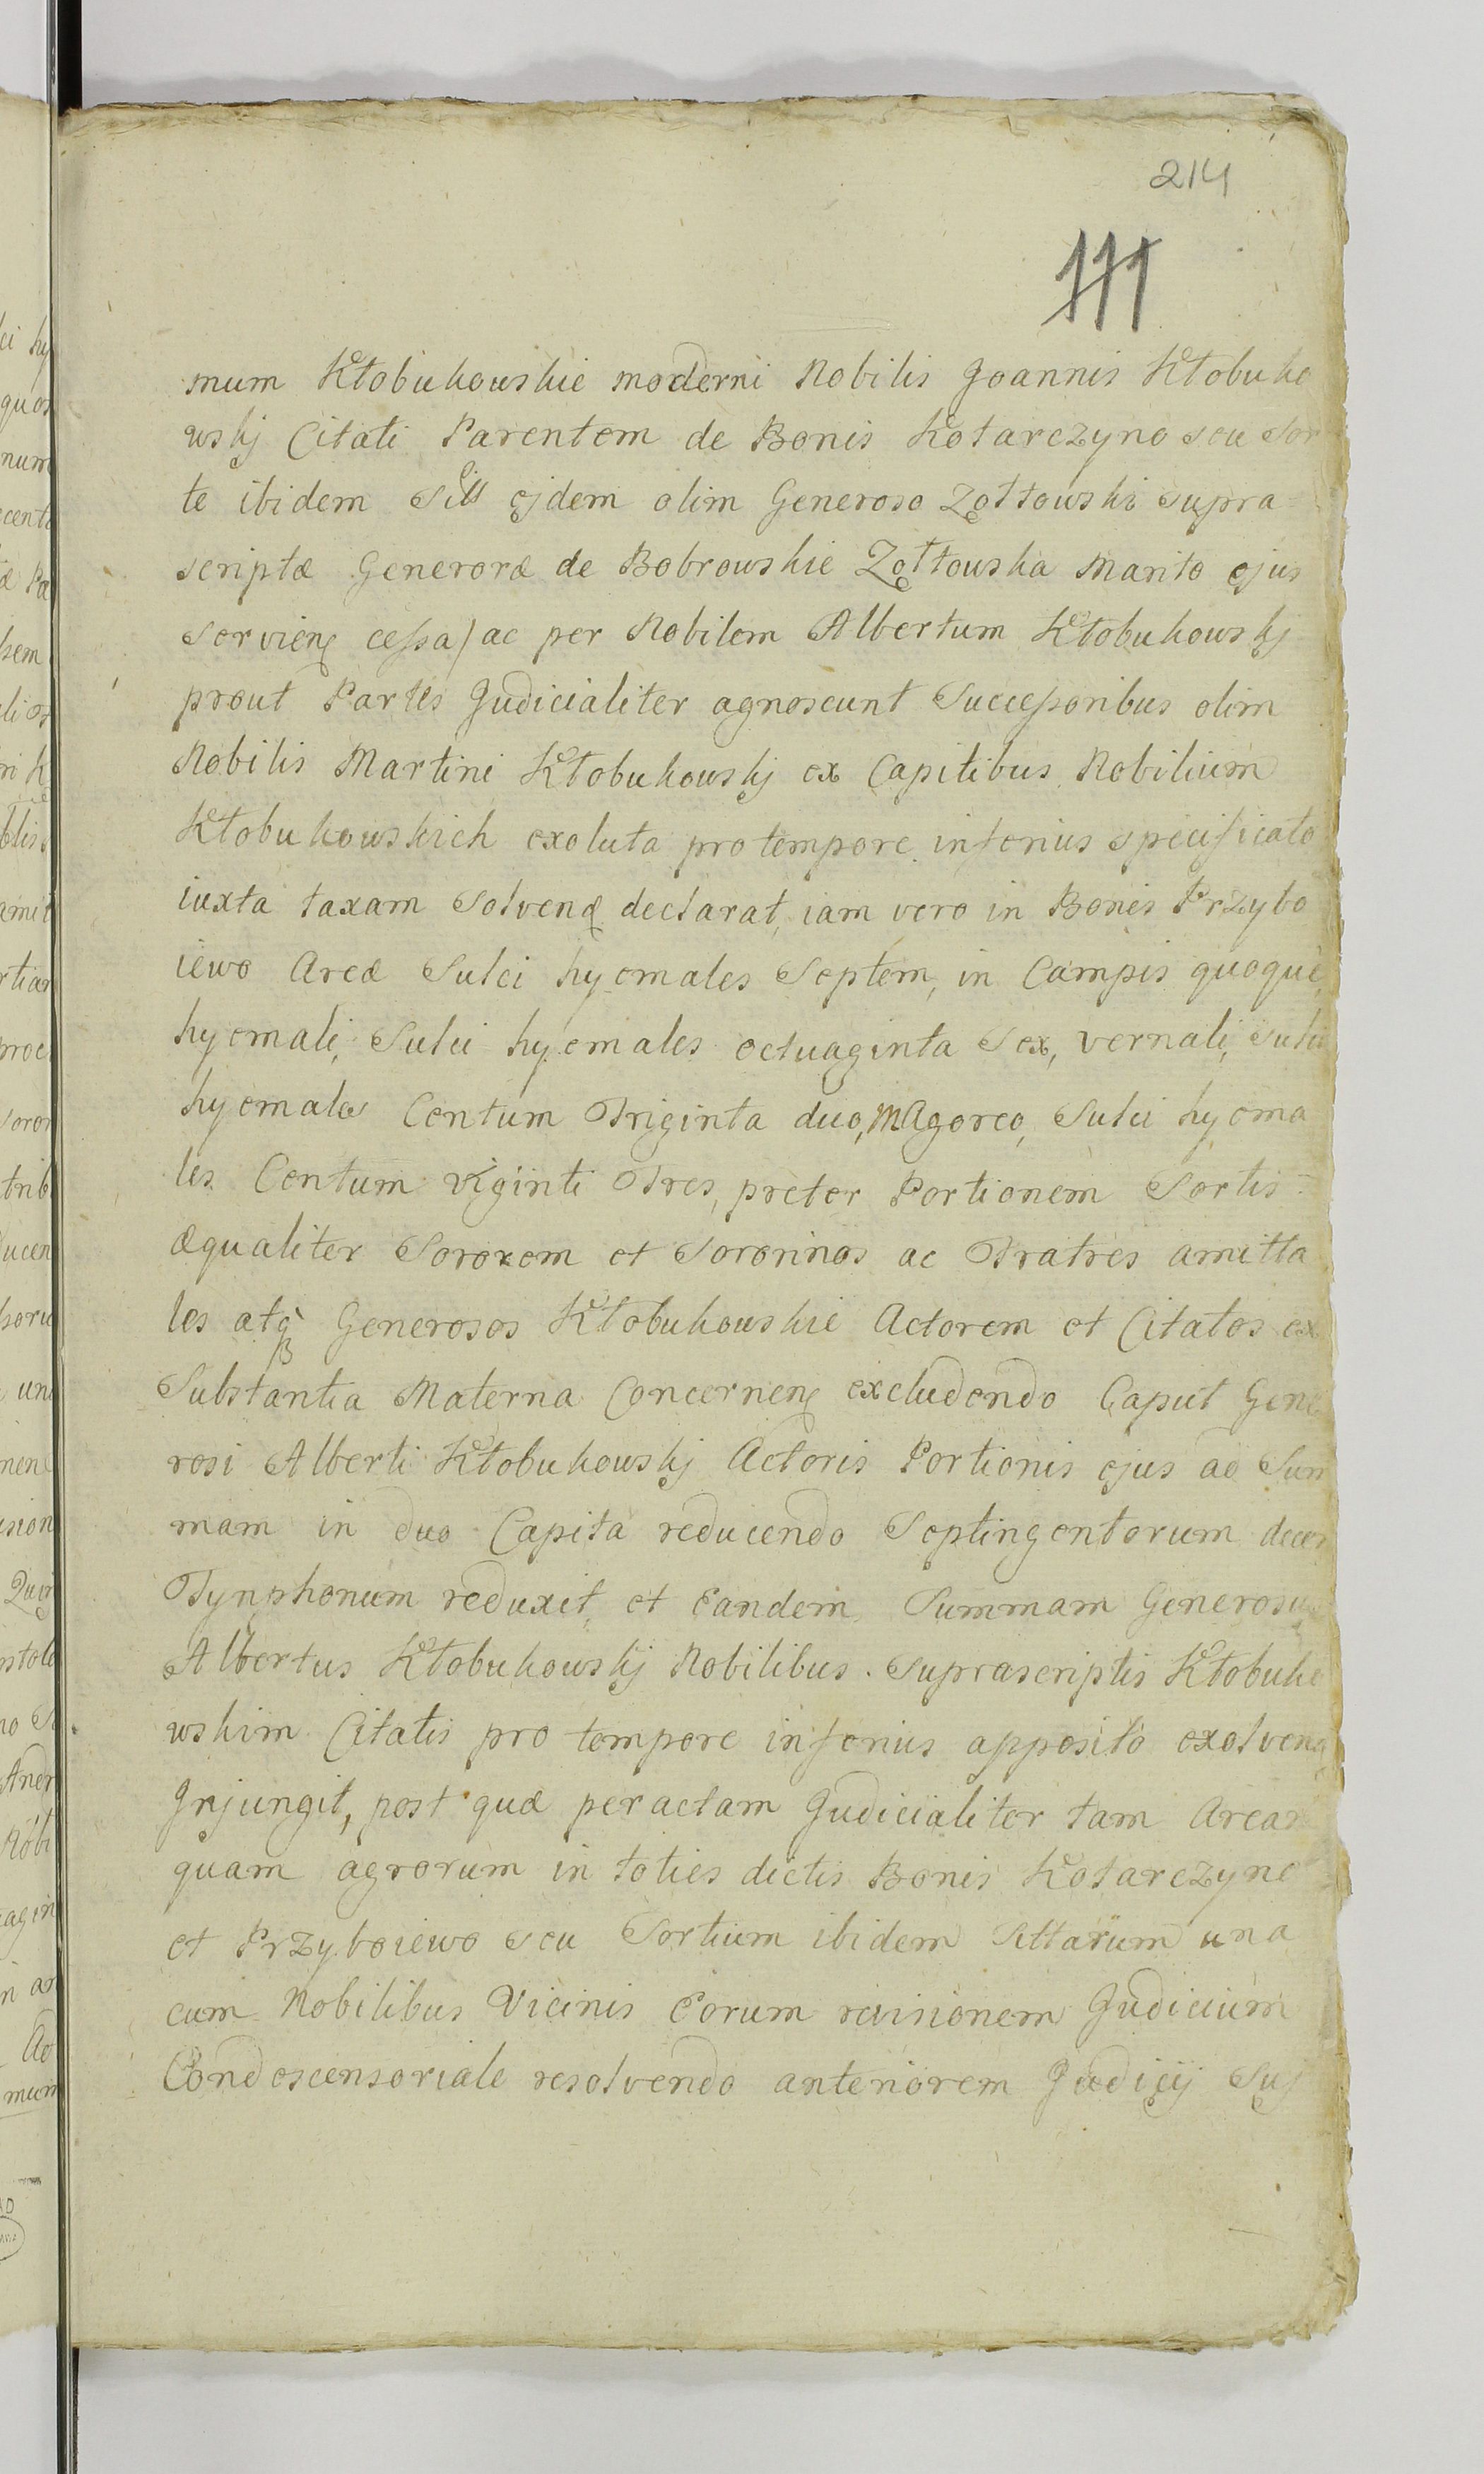 214
111
mum Kłobukowskie moderni Nobilis Joannis Kłobuko
wskj Citati Parentem de Bonis Kotarczyno seu Sor
te ibidem ejdem olim Generoso Zołtowski supra
scriptæ Generoræ de Bobrowskie Zołtowska Marito ejus
servienę cessa) ac per Nobilem Albertum Kłobukowskj
prout Partes Judicialiter agnoscunt Successoribus olim
Nobilis Martini Kłobukowskj ex Capitibus Nobilium
Kłobukowskich exoluta pro tempore inferius specificato
iuxta taxam Solvenę declarat, iam vero in Bonis Przybo
iewo Areæ Sulci hyemales Septem, in Campis quoque,
hyemali, Sulci hyemales octuaginta Sex, vernali, Sulci
hyemales Centum Triginta duo, Magoreo, Sulci hyema
les Centum viginti Tres, preter Portionem Sortis
æqualiter Sororem et Sororinos ac Fratres amitta
les atq Generosos Kłobukowskie Actorem et Citatos ex
Substantia Materna Concernenę excludendo Caput Gene
rosi Alberti Kłobukowskj Actoris Portionis ejus ad Sum
mam in duo Capita reducendo Septingentorum decem
Tynphonum reduxit, et eandem Summam Generosus
Albertus Kłobukowskj Nobilibus suprascriptis Kłobuko
wskim Citatis pro tempore inferius apposito exolvenę
Injungit, post quæ peractam Judicialiter tam Arear
quam agrorum in toties dictis Bonis Kotarczyno
et Przyboiewo seu Sortium ibidem Sittarum una
cum Nobilibus Vicinis Eorum revisionem Judicium
Condescensoriale resolvendo anteriorem Judicij Suj